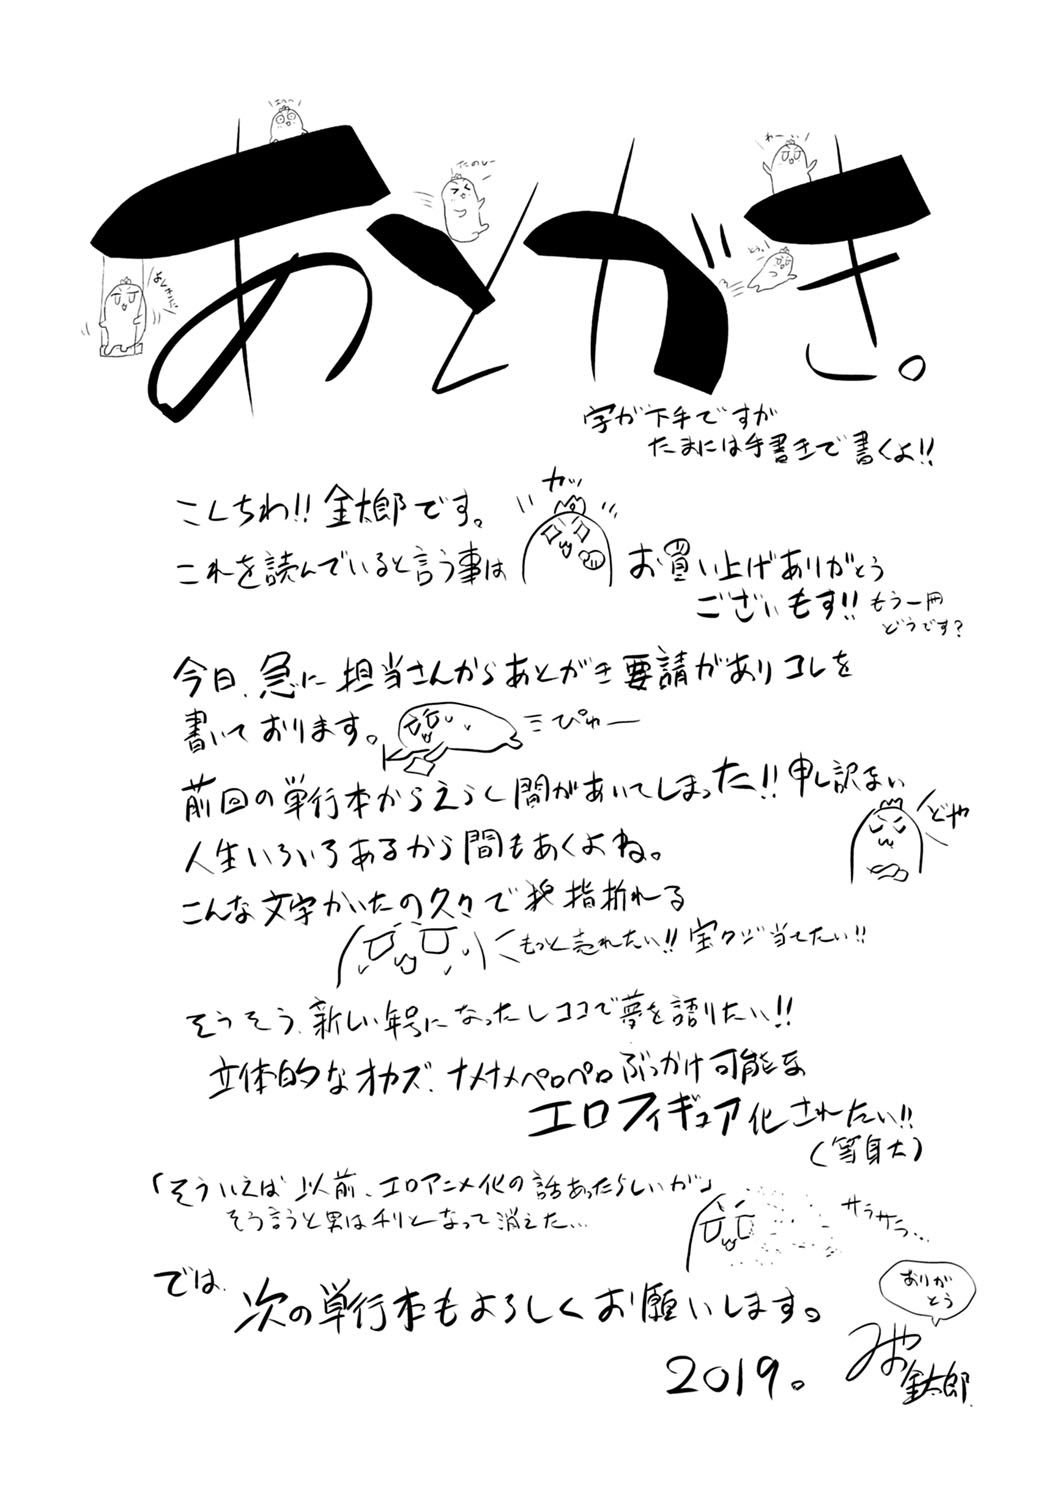 あとがき。
たのしー
わーい
字が下手ですが
たまには手書きで書くよ!!
こんちわ!! 金太郎です。
カッ
これを読んでいると言う事は
お買い上げありがとう
ございもす!! もう一冊
どうです?
今日、急に担当さんからあとがき要請がありコレを
書いております。
ぴゅー
前回の単行本からえらく間があいてしまった!! 申し訳ない
どや
人生いろいろあるから間もあくよね。
こんな文字かいたの久々で 指折れる
もっと売れたい!! 宝クジ当てたい!!
そうそう、新しい年号になったしココで夢を語りたい!!
立体的なオカズ、ナメナメペロペロぶっかけ可能な
エロフィギュア化されたい!!
(等身大)
「そういえば以前、エロアニメ化の話あったらしいが」
そう言うと男はチリとなって消えた…
サラサラ…
では、
次の単行本もよろしくお願いします。
ありがとう
2019。
みやお金太郎